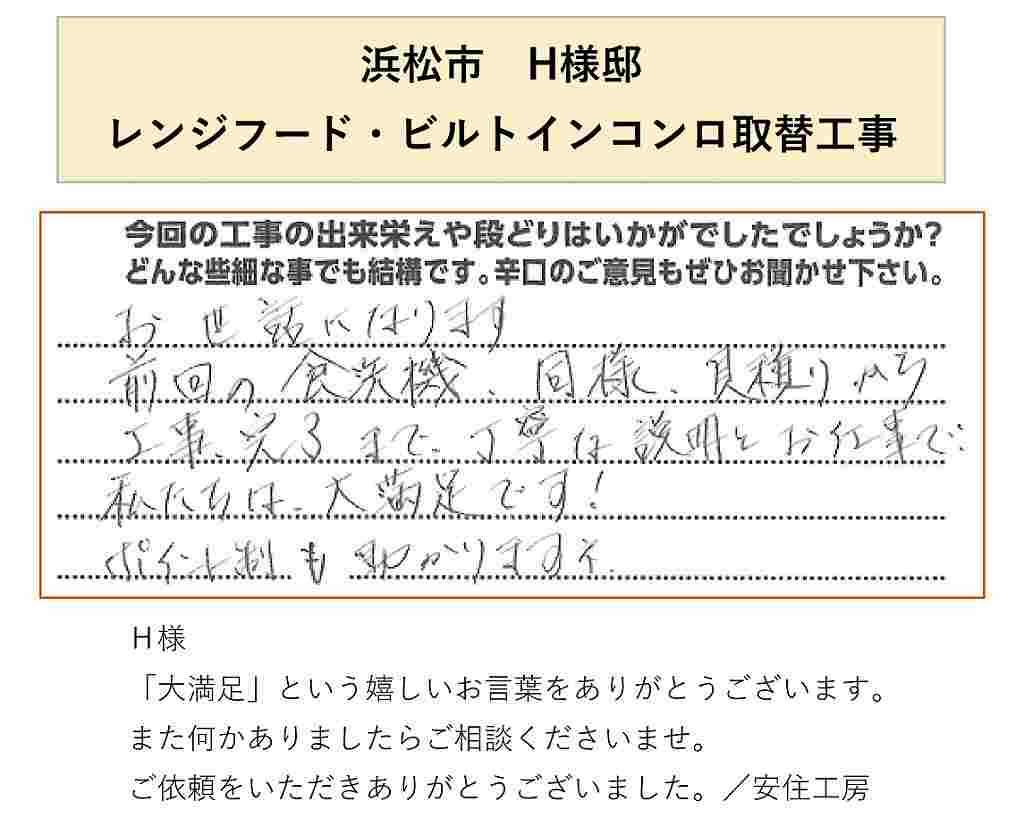 浜松市　H様邸
レンジフード・ビルトインコンロ取替工事
今回の工事の出来栄えや段どりはいかがでしたでしょうか?
どんな些細な事でも結構です。辛口のご意見もぜひお聞かせ下さい。
お世話になります
前回の食洗機、同様、見積りから
工事、完了まで、丁寧な説明とお仕事で
私たちは、大満足です!
ポイント制も助かります
H様
「大満足」という嬉しいお言葉をありがとうございます。
また何かありましたらご相談くださいませ。
ご依頼をいただきありがとうございました。／安住工房